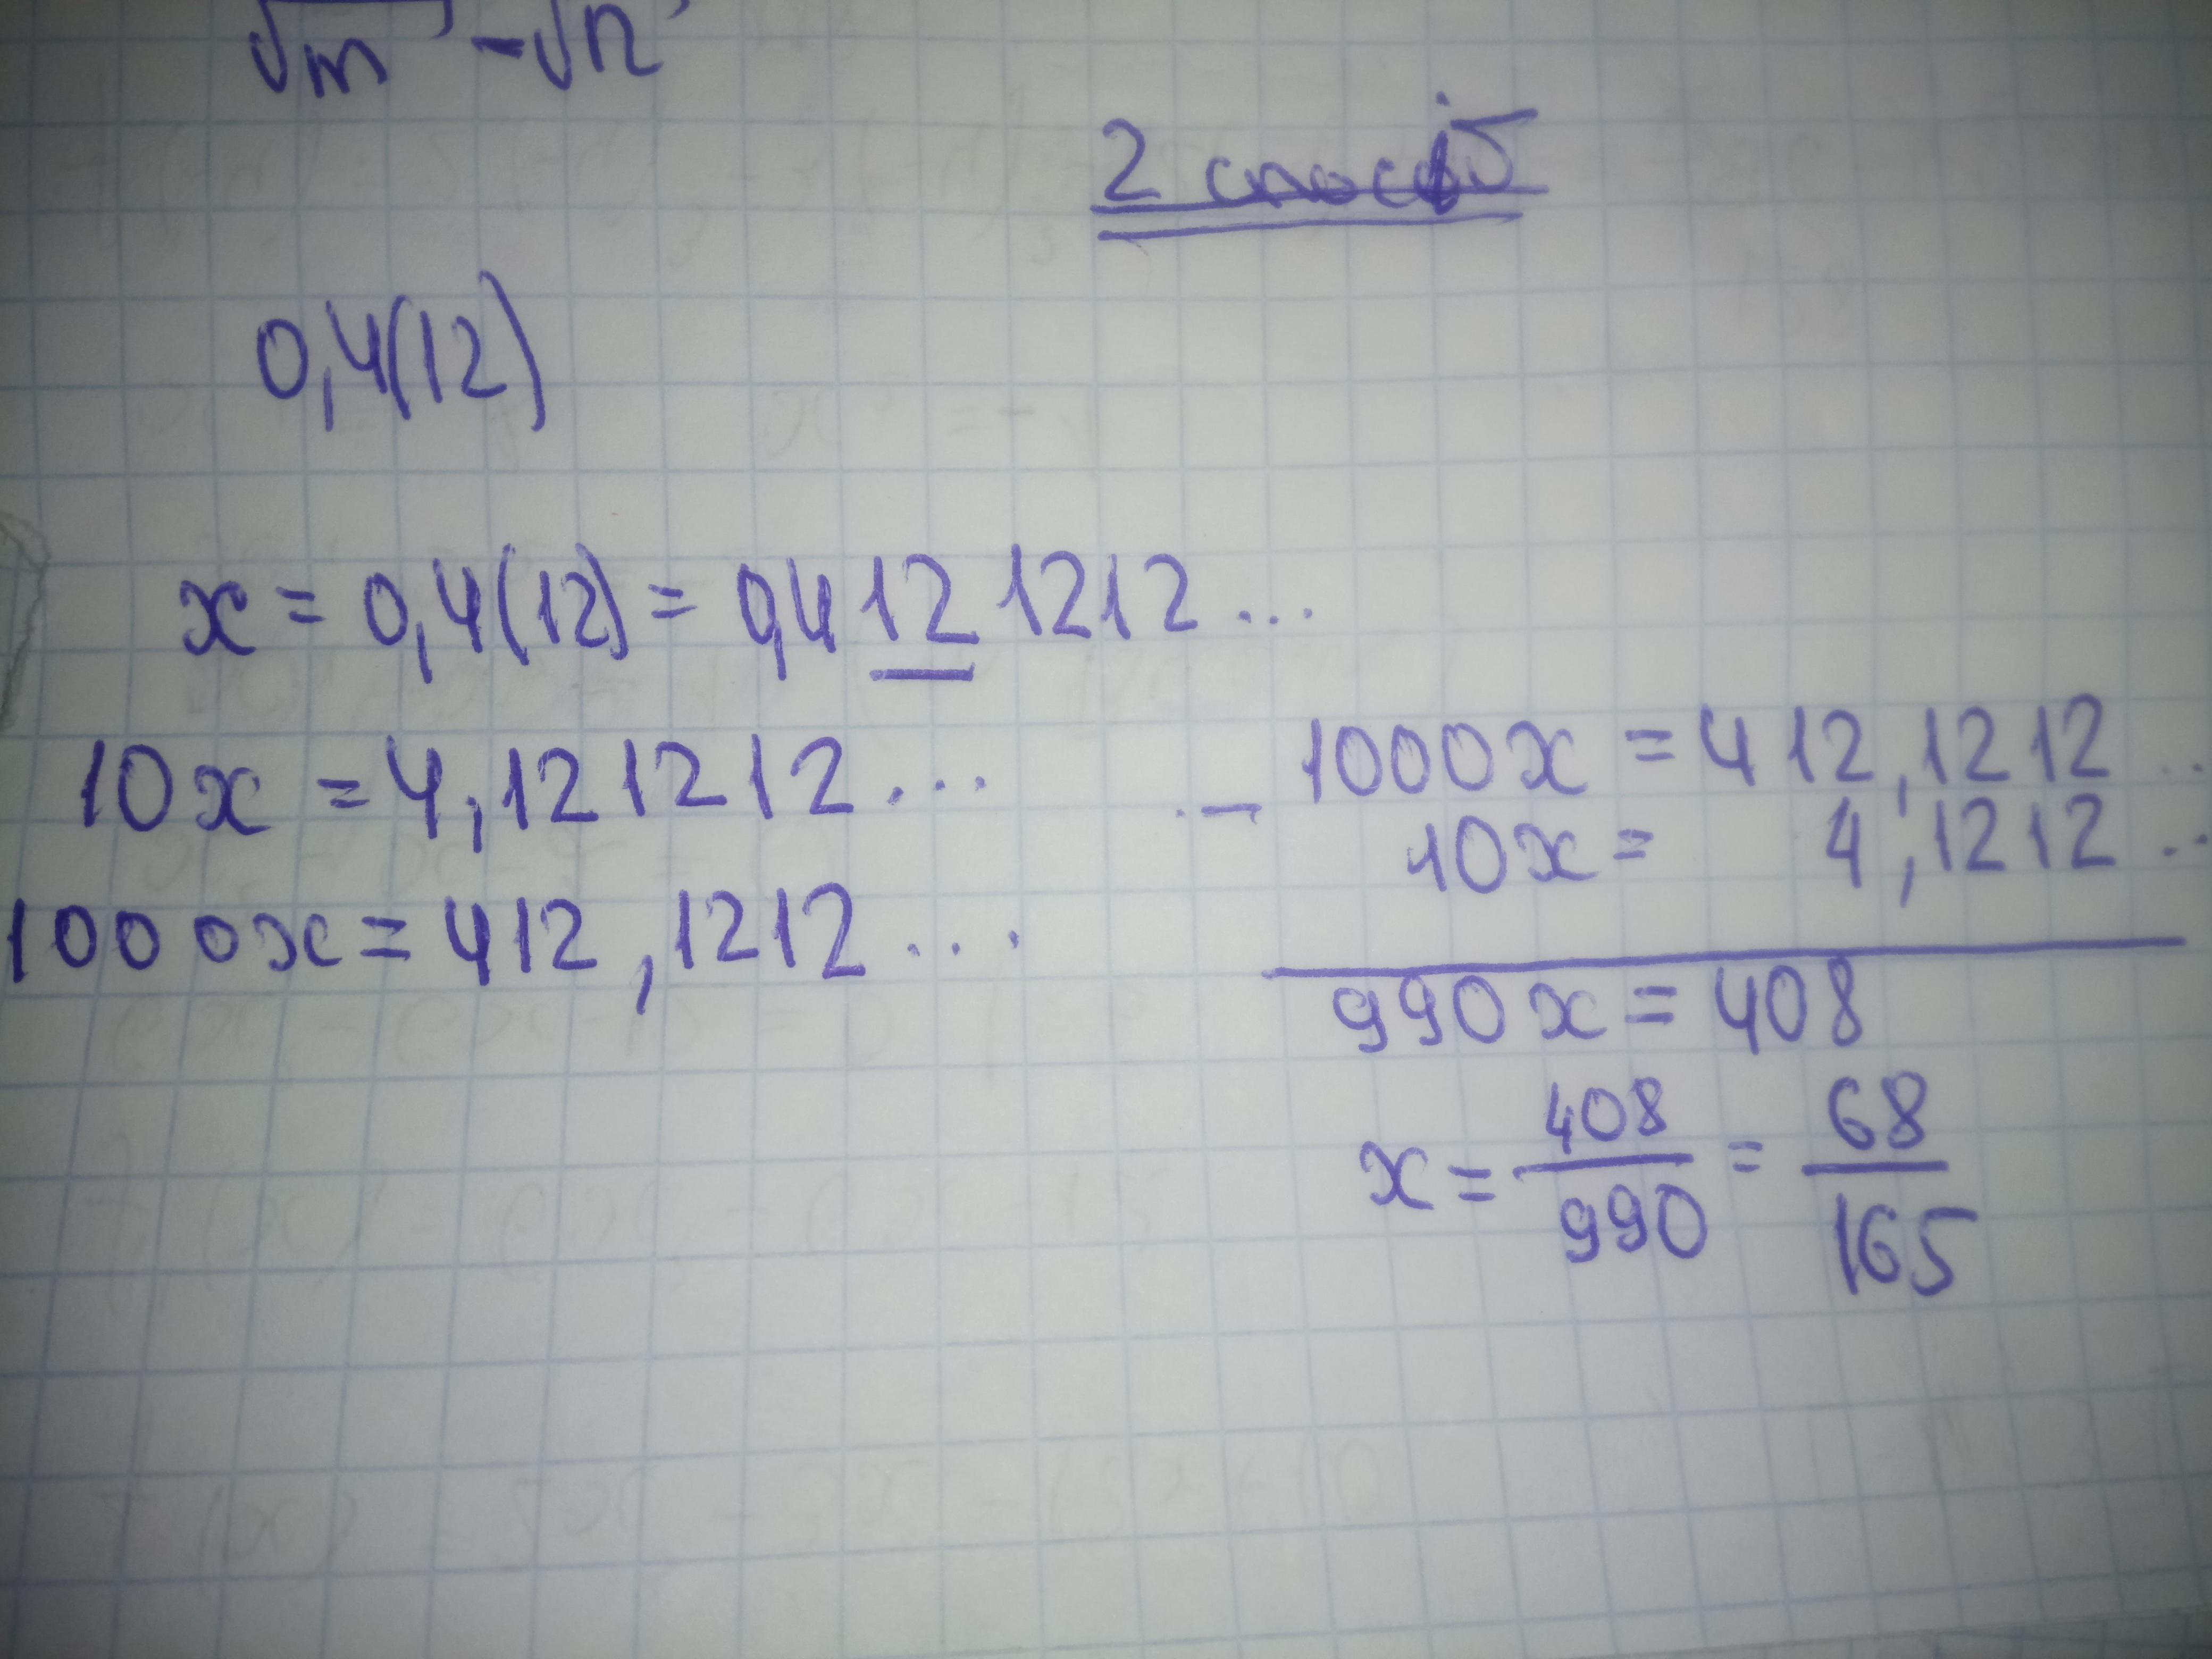 √m - √n
2 спосіб
0,4(12)
x = 0,4(12) = 0,4121212...
10x = 4,121212...
1000x = 412,1212...
- 1000x = 412,1212..
10x = 4,1212..
990x = 408
x = 408/990 = 68/165